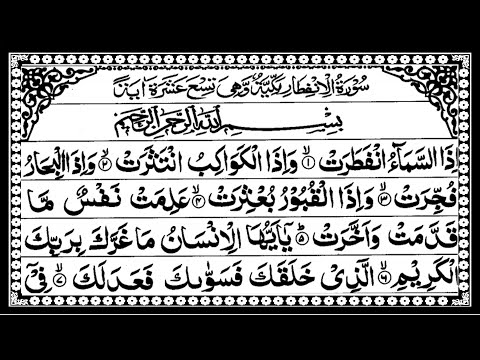 سُوْرَةُ الْاِنْفِطَارِ مَكِّيَّةٌ وَّهِيَ تِسْعَ عَشْرَةَ اٰيَةً
بِسْمِ اللّٰهِ الرَّحْمٰنِ الرَّحِيْمِ
اِذَا السَّمَآءُ انْفَطَرَتْ ۙ﴿۱﴾ وَاِذَا الْكَوَاكِبُ انْتَثَرَتْ ۙ﴿۲﴾ وَاِذَا الْبِحَارُ
فُجِّرَتْ ۙ﴿۳﴾ وَاِذَا الْقُبُوْرُ بُعْثِرَتْ ۙ﴿۴﴾ عَلِمَتْ نَفْسٌ مَّا
قَدَّمَتْ وَاَخَّرَتْ ؕ﴿۵﴾ يٰۤاَيُّهَا الْاِنْسَانُ مَا غَرَّكَ بِرَبِّكَ
الْكَرِيْمِ ۙ﴿۶﴾ الَّذِيْ خَلَقَكَ فَسَوّٰىكَ فَعَدَلَكَ ۙ﴿۷﴾ فِيْۤ